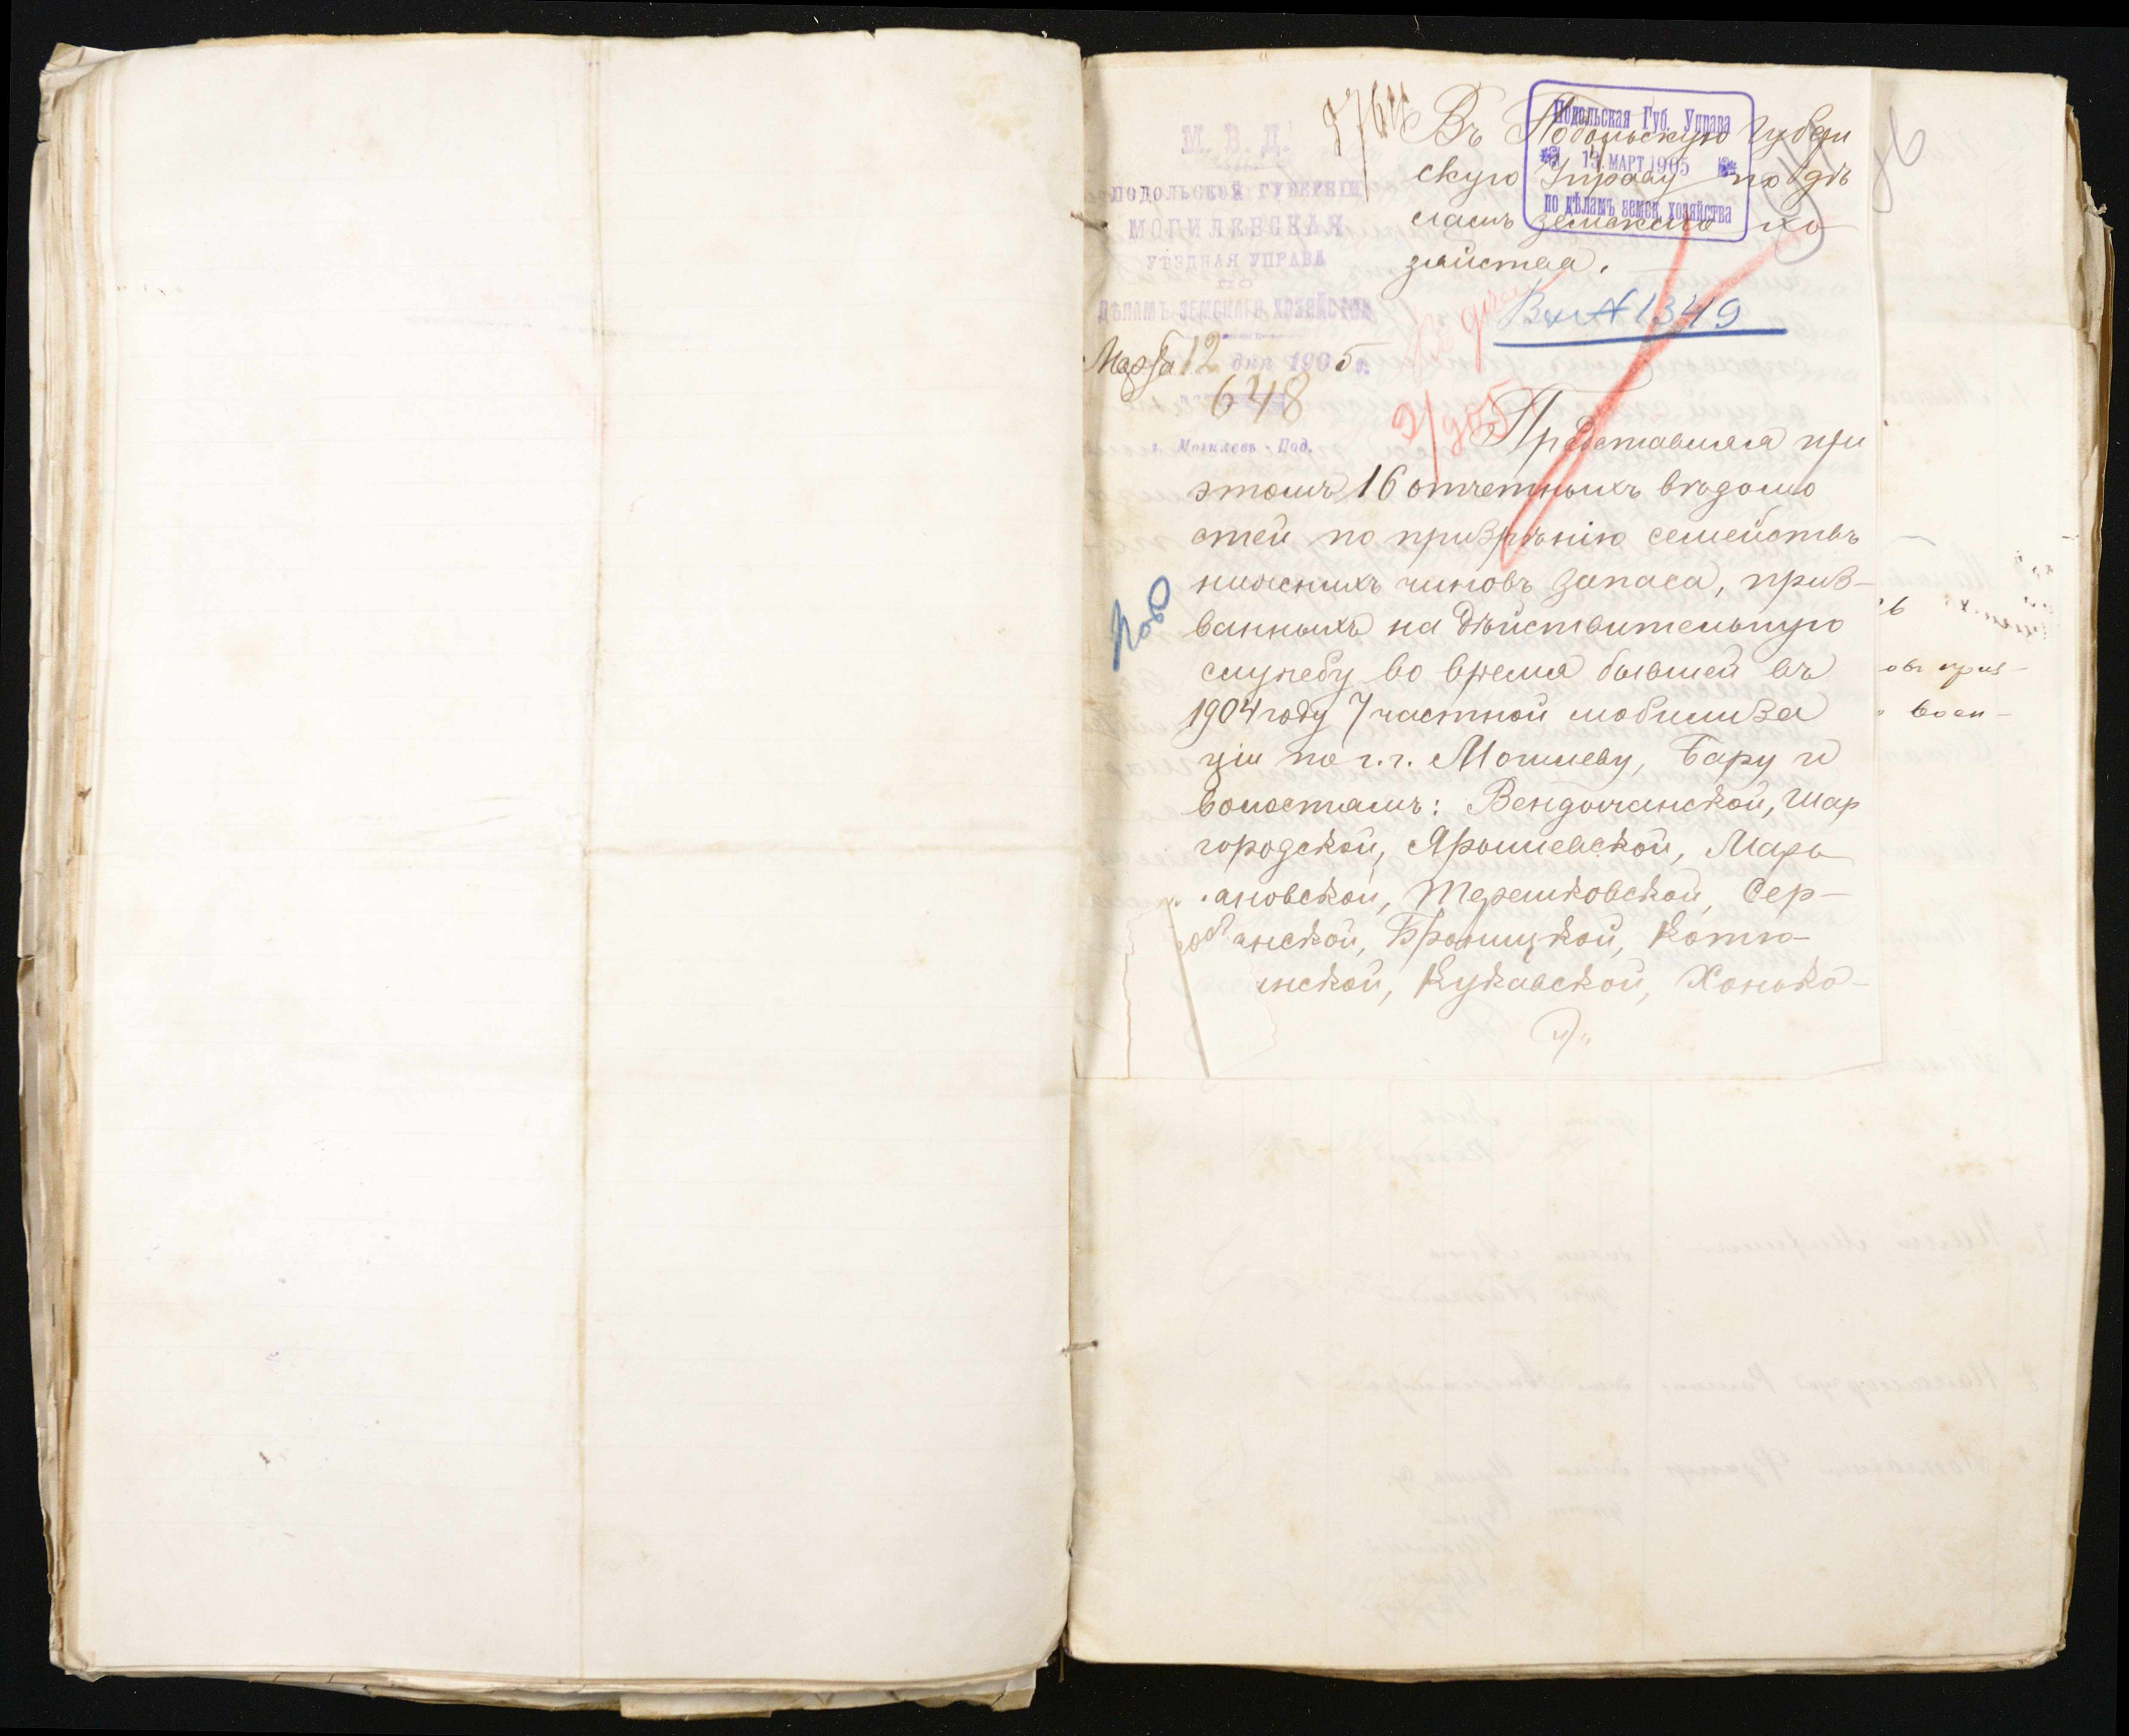 М. В. Д.
ПОДОЛЬСКОЙ ГУБЕРНІИ
МОГИЛЕВСКАЯ
УѢЗДНАЯ УПРАВА
ПО
ДѢЛАМЪ ЗЕМСКАГО ХОЗЯЙСТВА
Марта 12 дня 1905 г.
648
г. Могилевъ-Под.
Подольская Губ. Управа
13. МАРТ 1905
по дѣламъ земск. хозяйства
Въ Подольскую Губерн
скую Управу по дѣ
ламъ земскаго хо
зяйства.
Вх № 1349
Представляя при
этомъ 16 отчетныхъ вѣдомо
стей по призрѣнію семействъ
нижнихъ чиновъ запаса, приз-
ванныхъ на дѣйствительную
службу во время бывшей въ
1904 году 7 частной мобилиза
ціи по г.г. Могилеву, Бару и
волостямъ: Вендичанской, Шар
городской, Ярышевской, Марь
яновской, Терешковской, Сер-
анской, Броницкой, Котю-
нской, Кукавской, Хонько-
овъ приз-
воен-